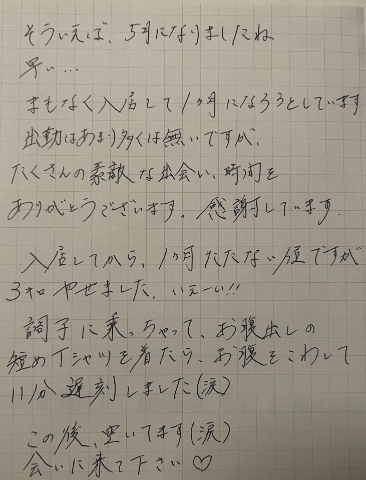 そういえば、5月になりましたね
早い…
まもなく入店して1ヶ月になろうとしています
出勤はあまり多くは無いですが、
たくさんの素敵な出会い、時間を
ありがとうございます。感謝しています。
入店してから、1ヶ月たたない位ですが
3キロやせました。いぇーい!!
調子に乗っちゃって、お腹出しの
短めTシャツを着たら、お腹をこわして
11分遅刻しました(涙)
この後、空いてます(涙)
会いに来て下さい♡